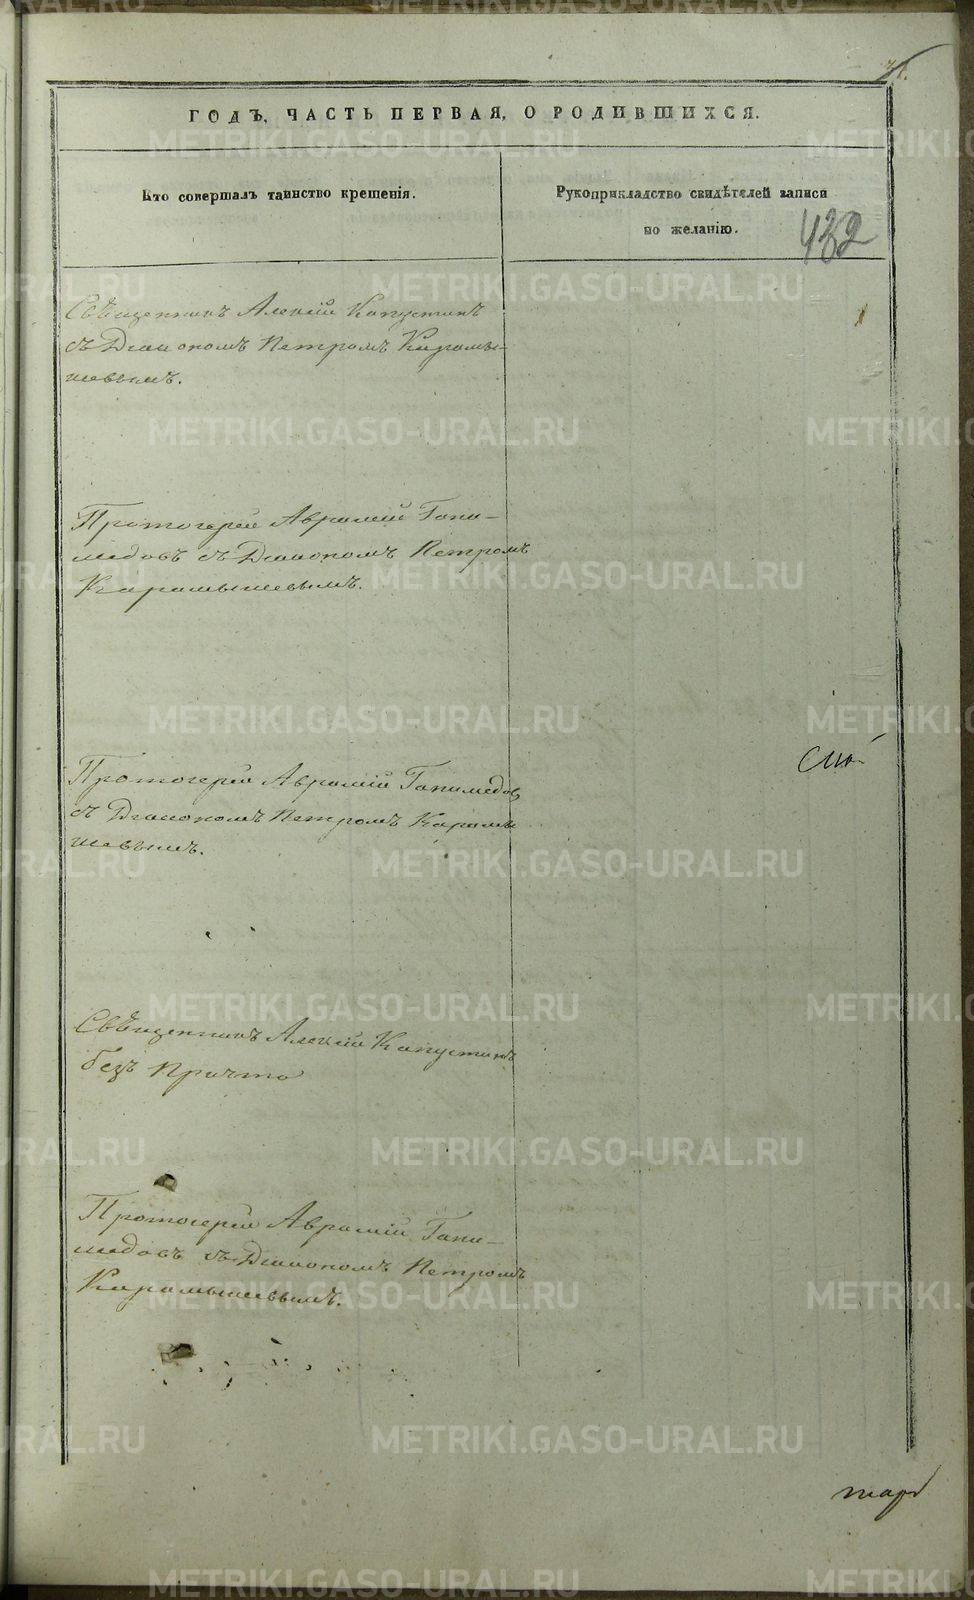 ГОДЪ, ЧАСТЬ ПЕРВАЯ, О РОДИВШИХСЯ.
Кто совершалъ таинство крещенія.
Рукоприкладство свидѣтелей записи
по желанію.
432
Священникъ Алексій Капустинъ
съ Діакономъ Петромъ Карамы-
шевымъ.
Протоіерей Авраамій Гани-
медовъ съ Діакономъ Петромъ
Карамышевымъ.
Протоіерей Авраамій Ганимедовъ
съ Діакономъ Петромъ Карамы
шевымъ.
Священникъ Алексій Капустинъ
безъ Причта
Протоіерей Авраамій Гани-
медовъ съ Діакономъ Петромъ
Карамышевымъ.
METRIKI.GASO-URAL.RU